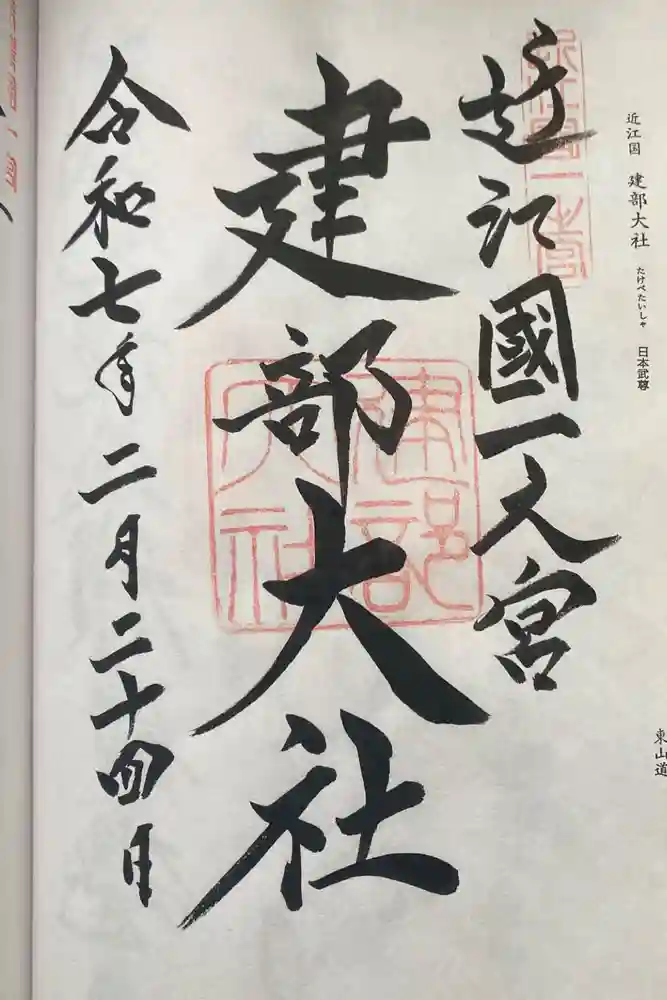 近江国 建部大社 たけべたいしゃ 日本武尊
東山道
近江國一之宮
建部大社
令和七年二月二十四日
近江國一之宮
建部
大社